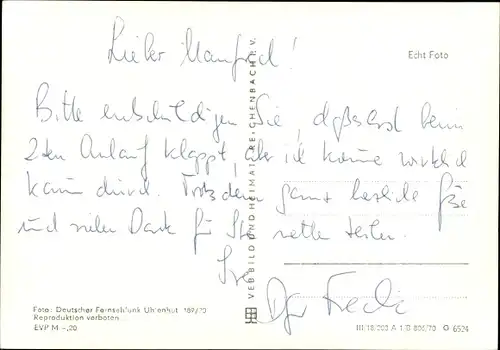 Lieber Manfred!
Echt Foto
Bitte entschuldigen Sie, daß erst beim
2ten Anlauf klappt, aber ich komme wirklich
kaum durch. Trotzdem ganz herzliche Grüße
und vielen Dank für die netten Zeilen.
Ihre
VEB BILD UND HEIMAT REICHENBACH I. V.
Foto: Deutscher Fernsehfunk Uhlenhut 189/70
Reproduktion verboten
EVP M -,20
III/18/200 A 1/B 806/70 G 6524